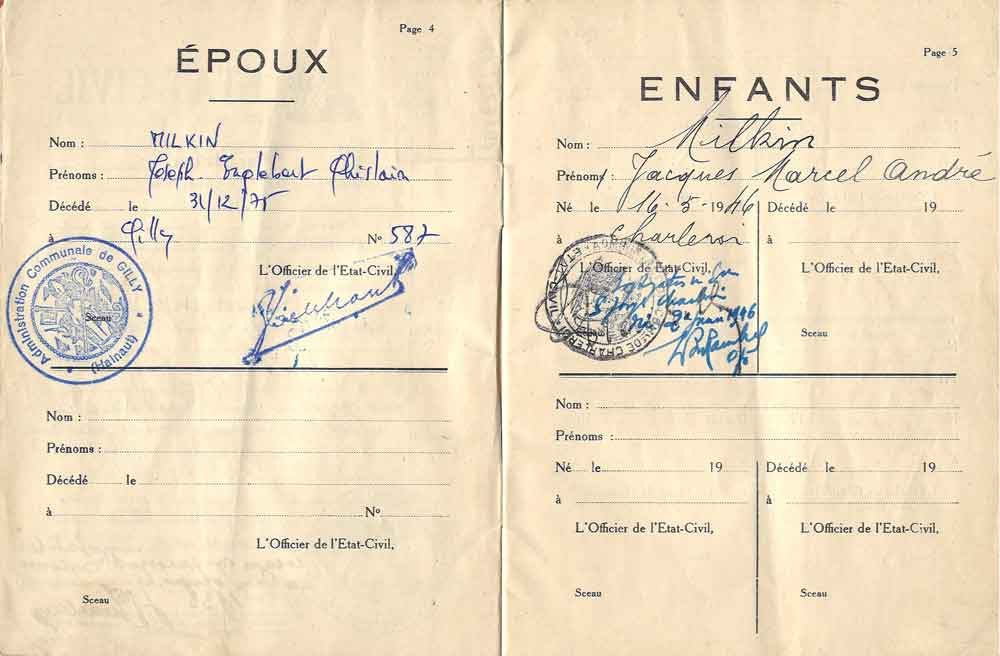 Page 4
ÉPOUX
Nom : MILKIN
Prénoms : Joseph Englebert Ghislain
Décédé le 31/12/75
à Gilly No 587
L'Officier de l'Etat-Civil,
Administration Communale de GILLY
(Hainaut)
Sceau
Nom :
Prénoms :
Décédé le
à No
L'Officier de l'Etat-Civil,
Sceau
Page 5
ENFANTS
Nom : Milkin
Prénoms Jacques Marcel André
Né le 16-5-1946 Décédé le 19
à Charleroi à
L'Officier de l'Etat-Civil, L'Officier de l'Etat-Civil,
ETAT CIVIL
DE CHARLEROI
1946
Sceau
Nom :
Prénoms :
Né le 19 Décédé le 19
à à
L'Officier de l'Etat-Civil, L'Officier de l'Etat-Civil,
Sceau Sceau